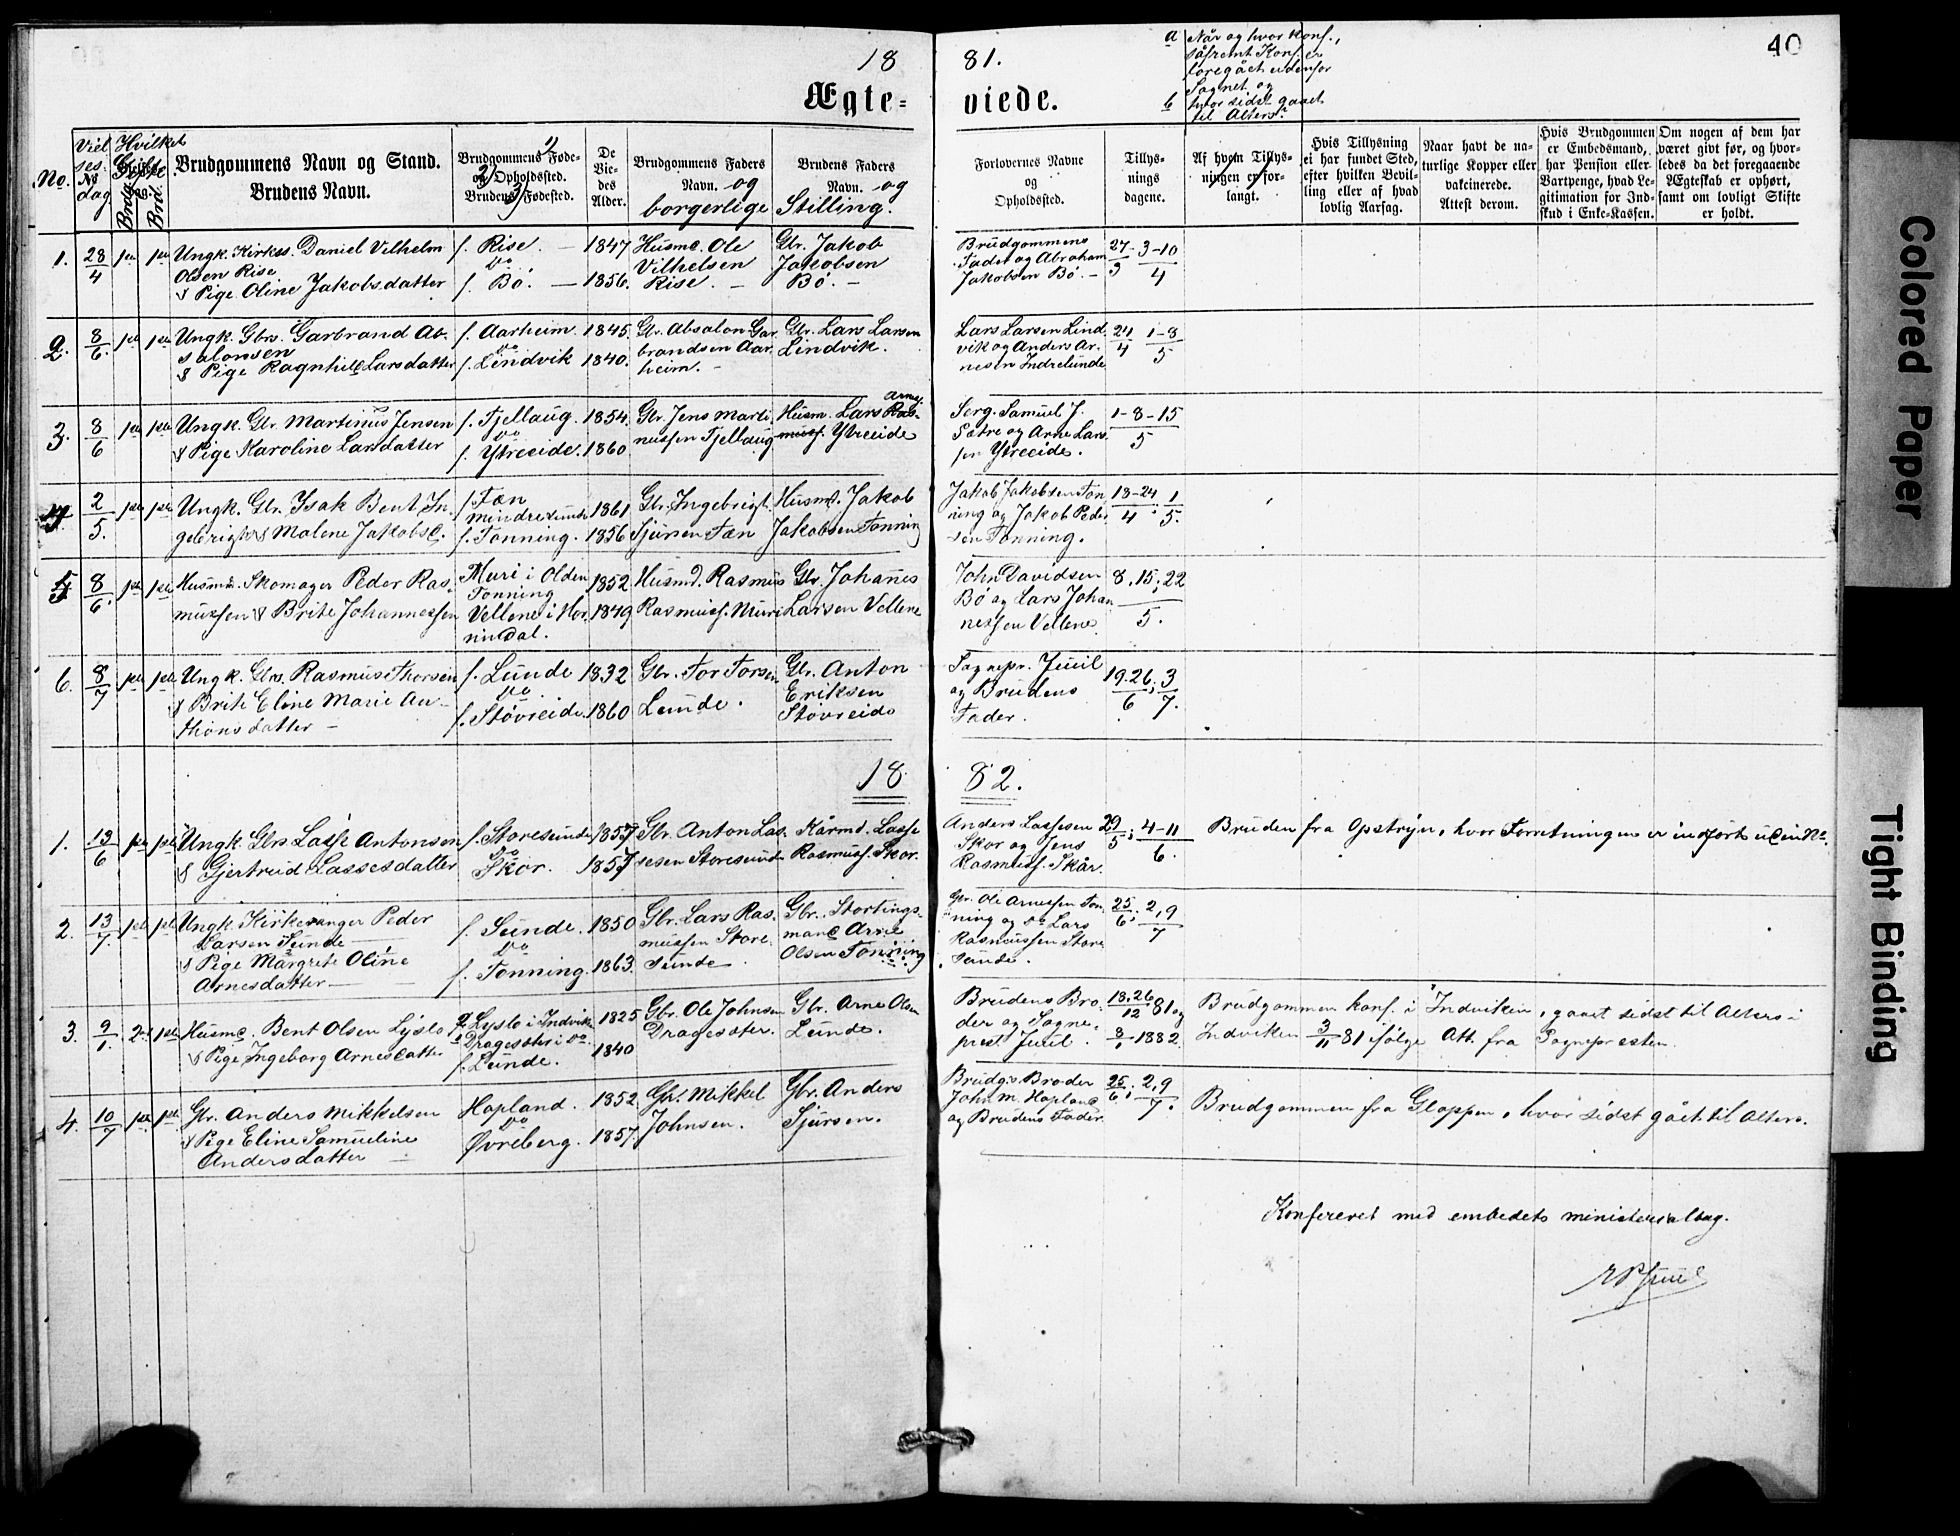 18 81.
40
Ægte= viede.
a Når og hvor Konf.,
såfremt Konf. er
foregået udenfor
Sognet, og
b hvor sidst gaaet
til Alters.
No.
Vielsesdag
Hvilket Gifte
Brudgommens Navn og Stand.
Brudens Navn.
Brudgommens Føde-
og Opholdssted.
Brudens Fødested.
De
Vie-
des
Alder.
Brudgommens Faders
Navn. og
borgerlige
Brudens Faders
Navn. og
Stilling.
Forlovernes Navne
og
Opholdssted.
Tillys-
nings
dagene.
Af hvem Tillys-
ningen er for-
langt.
Hvis Tillysning
ei har fundet Sted,
efter hvilken Bevil-
ling eller af hvad
lovlig Aarsag.
Naar havt de na-
turlige Kopper eller
vakcinerede.
Attest derom.
Hvis Brudgommen
er Embedsmand,
har Pension eller
Vartpenge, hvad Le-
gitimation for Ind-
skud i Enke-Kassen.
Om nogen af dem har
været givt før, og hvor-
ledes da det foregaaende
Ægteskab er ophørt,
samt om lovligt Skifte
er holdt.
1. 28/4 1ste 1ste
Ungk. Kirkes. Daniel Vilhelm
Olsen Rise
& Pige Oline Jakobsdatter
f. Rise. — 1847
do
f. Bø. — 1856.
Husmd. Ole
Vilhelsen
Rise. —
Gbr. Jakob
Jakobsen
Bø. —
Brudgommens
Fader og Abraham
Jakobsen Bø. —
27/3 - 3-10/4
2. 8/6. 1ste 1ste
Ungk. Gbrs. Garbrand Ab-
salonsen
& Pige Ragnhild Larsdatter
f. Aarheim. 1845.
do
f. Lindvik 1840.
Gbr. Absalon Gar-
brandsen Aar-
heim. —
Gbr. Lars Larsen
Lindvik.
Lars Larsen Lind-
vik og Anders Ar-
nesen Indrelunde
24/4 1-8/5
3. 8/6 1ste 1ste
Ungk. Gbr. Martinus Jensen
& Pige Karoline Larsdatter
f. Fjellaug. 1854.
do
f. Ytreeide. 1860
Gbr. Jens Marti-
nussen Fjellaug
Husm. Lars Ras- Arne
muss. Ytreeide
Serg. Samuel J.
Sætre og Arne Lars-
sen Ytreeide.
1-8-15/5
4 2/5. 1ste 1ste
Ungk. Gbr. Isak Bent In-
gebrigts. & Malene Jakobsd.
f. Tæn
Mindresunde 1861
f. Tonning. 1856
Gbr. Ingebrigt
Sjursen Tæn
Husmd. Jakob
Jakobsen Tonning
Jakob Jakobsen Ton-
ning og Jakob Peder-
sen Tonning.
18-24/4; 1/5.
5 8/6. 1ste 1ste
Husmd. Skomager Peder Ras-
mussen & Brite Johannessen
Muri i Olden
Tonning 1852
Vellene i Hor- 1849
nindal.
Husmd. Rasmus
Rasmuss. Muri
Gbr. Johanes
Larsen Vellene
John Davidsen
Bø og Lars Johan-
nessen Vellene.
8,15,22/5.
6. 8/7 1ste 1ste
Ungk. Gbrs. Rasmus Thorsen
& Brite Eline Marie An-
thonsdatter —
f. Lunde 1832
do
f. Støvreide. 1860
Gbr. Tor Torsen
Lunde.
Gbr. Anton
Eriksen
Støvreide
Sognepr. Juul
og Brudens
Fader.
19.26/6; 3/7.
18 82.
1. 13/6 1ste 1ste
Ungk. Gbrs Lasse Antonsen
& Gjertrud Lassesdatter
f. Storesunde 1857
do
Skor. 1857
Gbr. Anton Las-
sesen Storesunde
Kårmd. Lasse
Rasmuss. Skor.
Anders Lassesen
Skor og Jens
Rasmuss. Skår.
29/5; 4-11/6.
Bruden fra Opstryn, hvor Forretningen er indført uden No.
2. 13/7 1ste 1ste
Ungk. Kirkesanger Peder
Larsen Sunde
& Pige Margrete Oline
Arnesdatter —
f. Sunde. 1850
do
f. Tonning. 1863.
Gbr. Lars Ras-
mussen Store-
sunde.
Gbr. Stortings-
mand Arne
Olsen Tonning
Gbr. Ole Arnessen Ton-
ning og do Lars
Rasmussen Store-
sunde.
25/6; 2,9/7
3. 9/1. 2det 1ste
Husmd. Bent Olsen Lyslo
& Pige Ingeborg Arnesdatter
Lyslo i Indviken 1825
Dragesæter i do
f. Lunde. 1840
Gbr. Ole Johnsen
Dragesæter.
Gbr. Arne Olsen
Lunde.
Brudens Bro-
der og Sogne-
prest Juul.
18.26/12 81 og
8/1 1882.
Brudgommen konf. i Indviken, gaaet sidst til Alters i
Indviken 3/11 81 ifølge Att. fra Sognepresten.
4. 10/7 1ste 1ste
Gbr. Anders Mikkelsen
& Pige Eline Samueline
Andersdatter —
Hopland. 1852
do
Øvreberg. 1857.
Gbr. Mikkel
Johnsen.
Gbr. Anders
Sjursen.
Brudg.s Broder
John M. Hopland
og Brudens Fader
25/6; 2,9/7.
Brudgommen fra Gloppen, hvor sidst gået til Alters.
Konfereret med embedets ministerialbog.
Juul
Colored Paper
Tight Binding